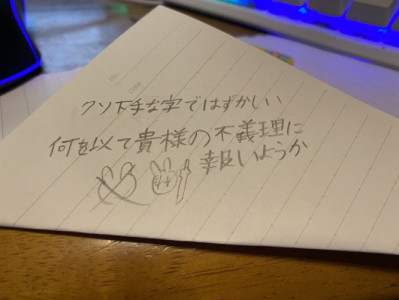 クソ下手な字ではずかしい
何を以て貴様の不義理に
報いようか